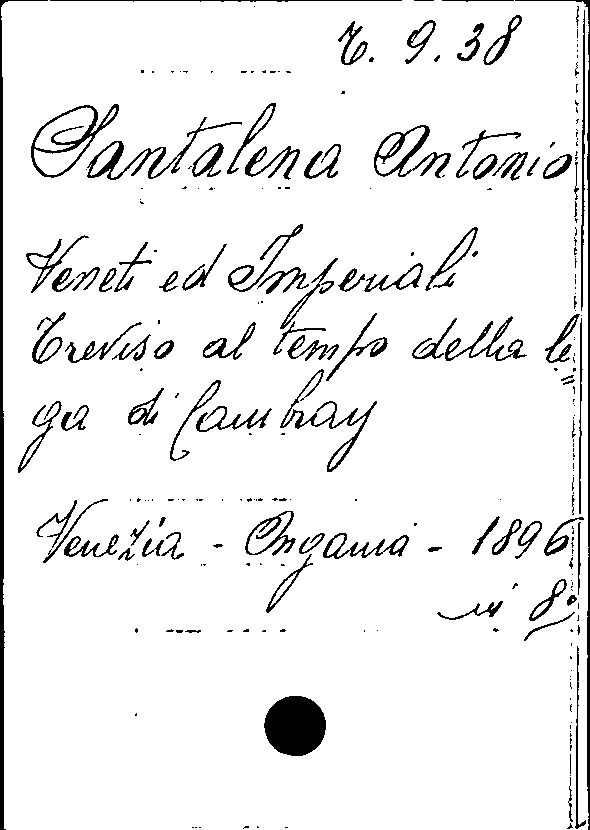 T. 9. 38
Santalena Antonio
Veneti ed Imperiali
Treviso al tempo della le
ga di Cambray
Venezia - Ongania - 1896
in 8°